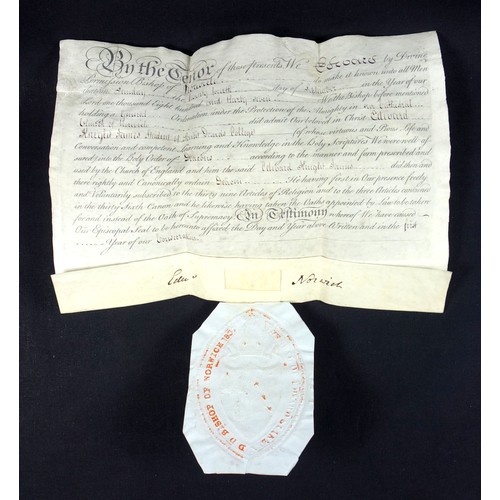 By the Tenor of these presents We Edward by Divine
Permission Bishop of Norwich do make it known unto all Men
on Sunday the day of September in the Year of our
Lord one thousand Eight hundred and thirty seven We the Bishop before mentioned
holding a General Ordination under the Protection of the Almighty in our Cathedral
Church of Norwich did admit Our beloved in Christ Edward
of whose virtuous and Pious life and
Conversation and competent Learning and Knowledge in the Holy Scriptures We were well as
sured into the Holy Order of Deacons according to the manner and form prescribed and
used by the Church of England and him the said Edward did then and
there rightly and Canonically ordain Deacon He having first in Our presence freely
and Voluntarily subscribed to the thirty nine Articles of Religion and to the three Articles contained
in the thirty Sixth Canon and he likewise having taken the Oaths appointed by Law to be taken
for and instead of the Oath of Supremacy In Testimony whereof We have caused
Our Episcopal Seal to be hereunto affixed the Day and Year above Written and in the first
Year of our Consecration
Edw Norwich
BISHOP OF NORWICH